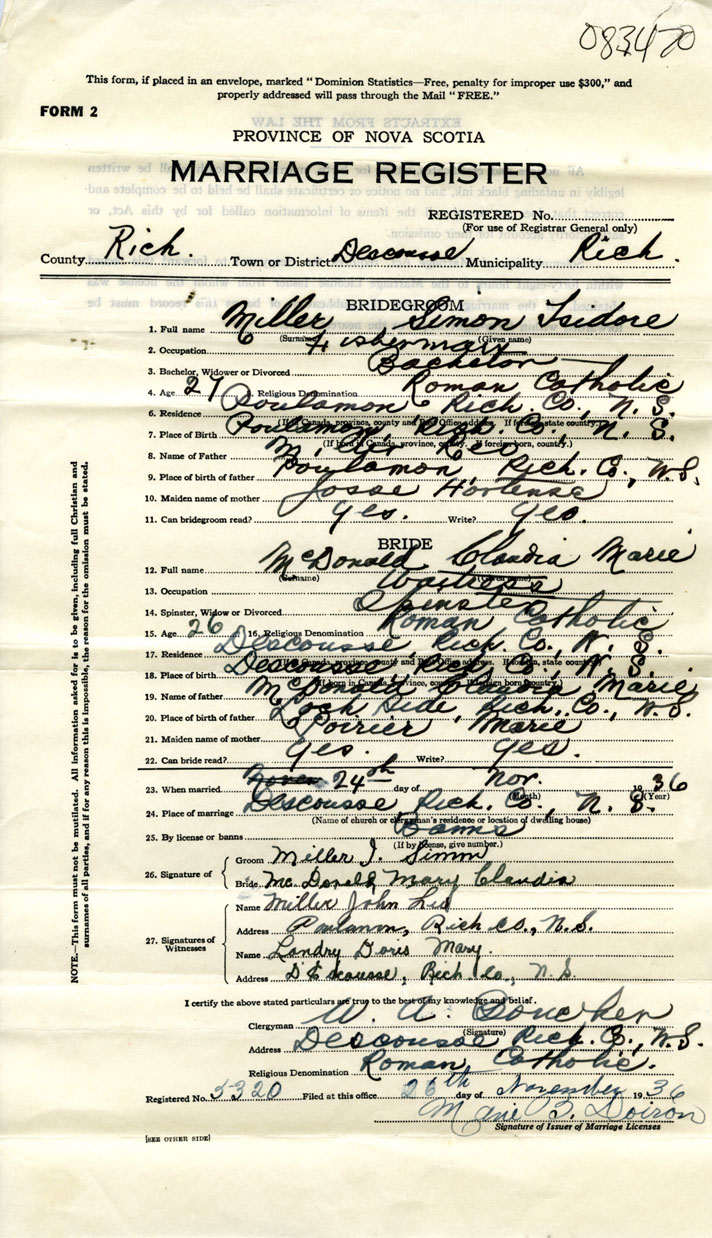 083470
This form, if placed in an envelope, marked "Dominion Statistics—Free, penalty for improper use $300," and
properly addressed will pass through the Mail "FREE."
FORM 2
PROVINCE OF NOVA SCOTIA
MARRIAGE REGISTER
REGISTERED No.
(For use of Registrar General only)
County Rich. Town or District Descousse Municipality Rich.
BRIDEGROOM
1. Full name Miller, Simon Isidore
(Surname) (Given name)
2. Occupation Fisherman
3. Bachelor, Widower or Divorced Bachelor
4. Age 27 5. Religious Denomination Roman Catholic
6. Residence Poulamon, Rich. Co., N. S.
(If Canada, province, county and Post Office address. If foreign, state country.)
7. Place of Birth Poulamon, Rich. Co., N. S.
(If born in Canada, province, county. If foreign born, country.)
8. Name of Father Miller Leo
9. Place of birth of father Poulamon, Rich. Co., N.S.
10. Maiden name of mother Josse Hortense
11. Can bridegroom read? Yes. Write? Yes.
BRIDE
12. Full name McDonald Claudia Marie
(Surname) (Given name)
13. Occupation Waitress
14. Spinster, Widow or Divorced Spinster
15. Age 26 16. Religious Denomination Roman Catholic
17. Residence Descousse, Rich. Co., N. S.
(If Canada, province, county and Post Office address. If foreign, state country.)
18. Place of birth Descousse, Rich. Co., N. S.
(If born in Canada, province, county. If foreign born, country.)
19. Name of father McDonald Claudia, Marie
20. Place of birth of father Loch Side, Rich. Co., N.S.
21. Maiden name of mother Poirier, Marie
22. Can bride read? Yes. Write? Yes.
23. When married 24th day of Nov. 1936
(Month) (Year)
24. Place of marriage Descousse, Rich. Co., N. S.
(Name of church or clergyman's residence or location of dwelling house)
25. By license or banns Banns
(If by license, give number.)
26. Signature of
Groom Miller I. Simon
Bride McDonald, Mary Claudia
27. Signatures of Witnesses
Name Miller John Leo
Address Poulamon, Rich Co., N.S.
Name Landry Doris Mary.
Address D'Escousse, Rich Co., N.S.
I certify the above stated particulars are true to the best of my knowledge and belief.
Clergyman W. A.
(Signature)
Address Descousse Rich. Co., N.S.
Religious Denomination Roman Catholic.
Registered No. 5320 Filed at this office 26th day of November 1936
Marie Doiron
Signature of Issuer of Marriage Licenses
[SEE OTHER SIDE]
NOTE.—This form must not be mutilated. All information asked for is to be given, including full Christian and
surnames of all parties, and if for any reason this is impossible, the reason for the omission must be stated.